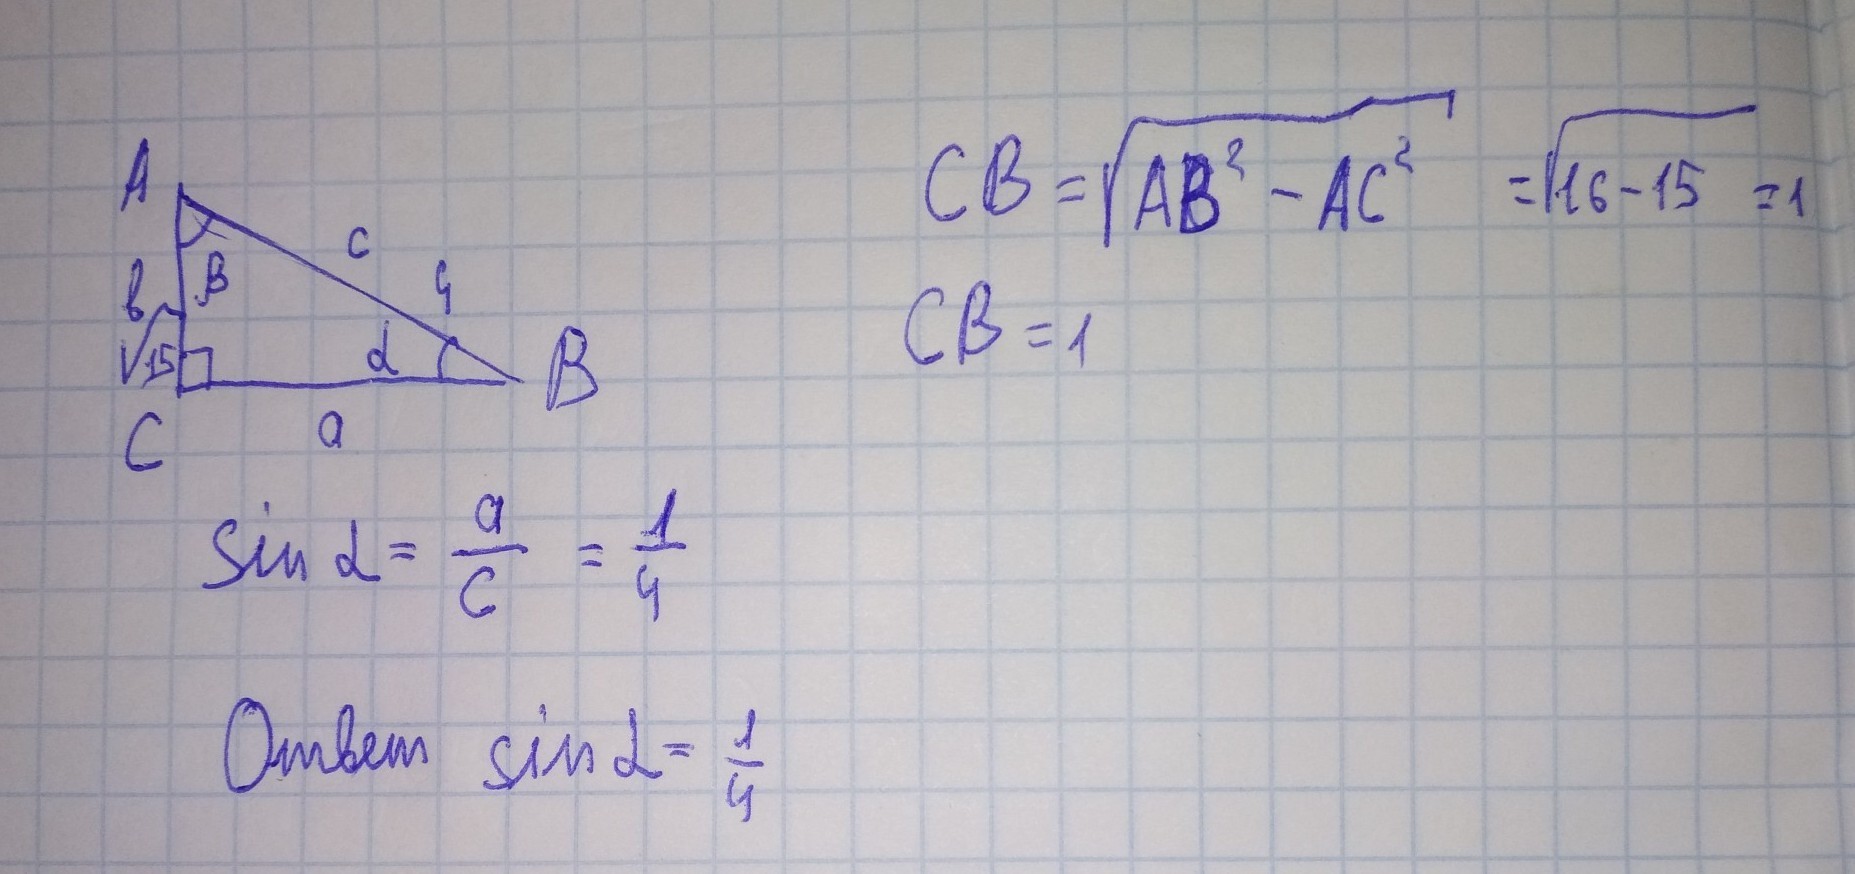 A
c
β
4
b
√15
α
B
C
a
CB = √AB² - AC² = √16-15 = 1
CB = 1
sin α = a/c = 1/4
Ответ sin α = 1/4